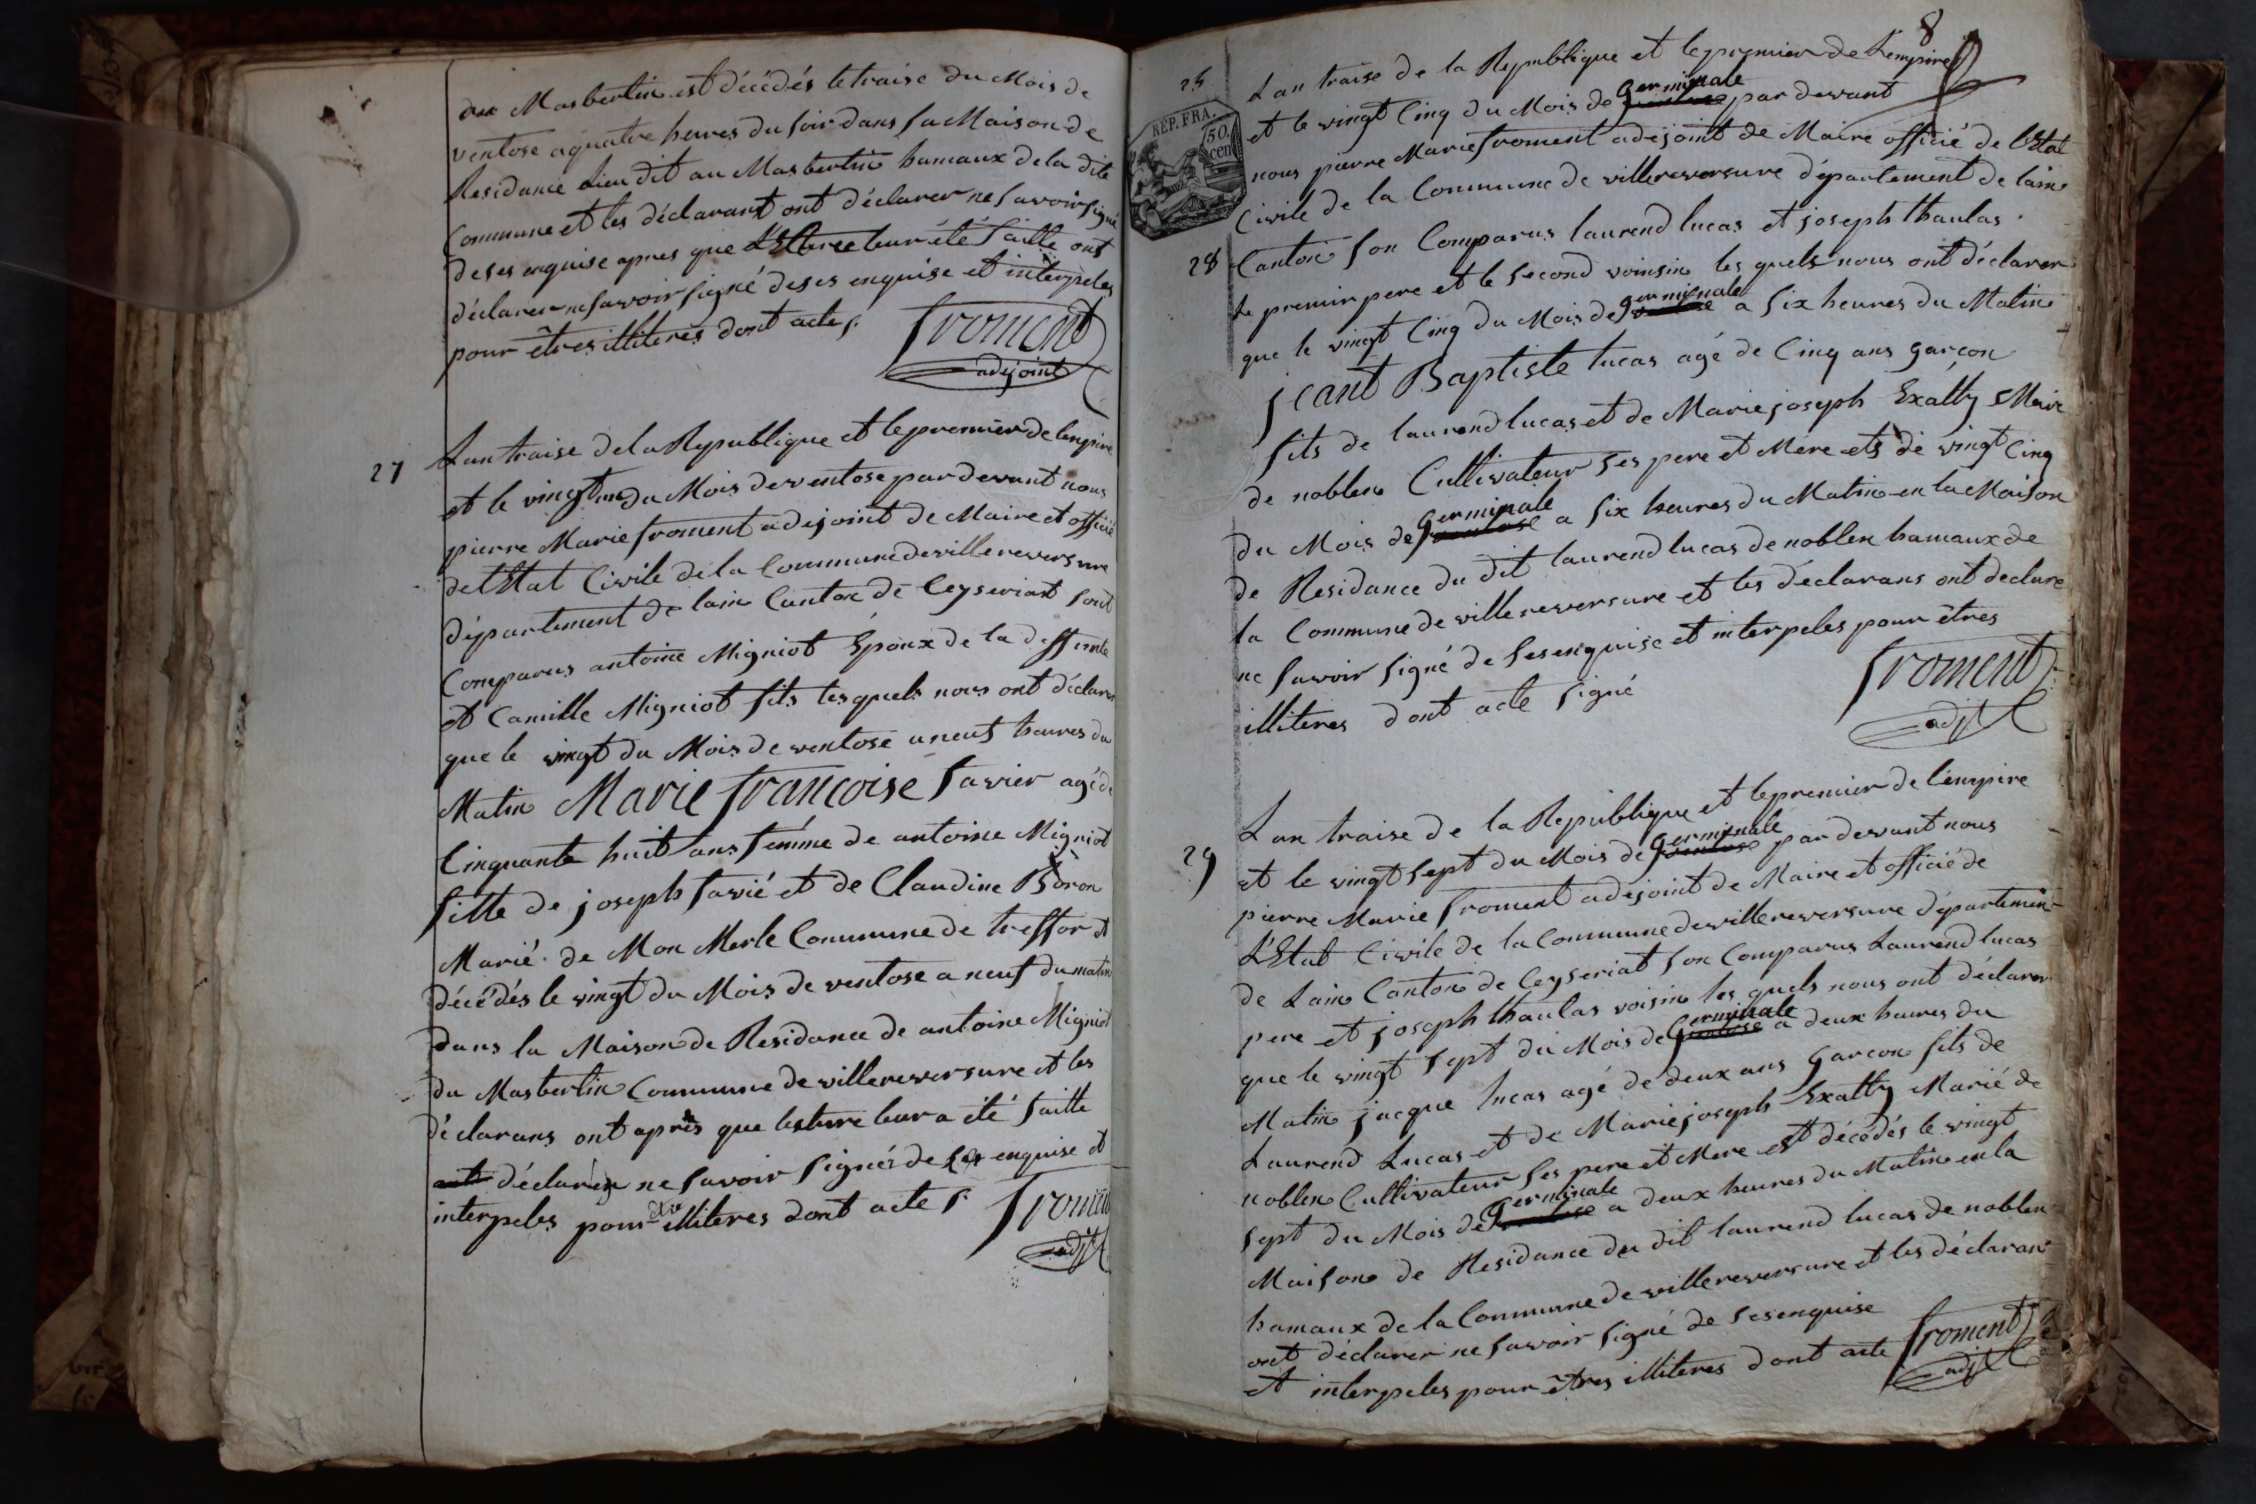 au Masbertin est décédés le traise du Mois de
ventose a quatre heures du soir dans sa Maison de
Residance lieu dit au Masbertin hamaux de la dite
Commune et les déclarant ont déclarer ne savoir signé
de ses enquise apres que leur été faitte ont
déclarer ne savoir signé de ses enquise et interpeles
pour êtres illiteres dont acte s.
froment
adejoint
27
Lan traise de la Republique et le premier de lenpire
et le vingt un du Mois de ventose par devant nous
pierre Marie froment adejoint de Maire et officié
de lEtat Civile de la Commune de villereversure
département de lain Canton de Ceyseriat sont
Comparus antoine Migniot Époux de la deffunte
et Camille Migniot fils lesquels nous ont déclarer
que le vingt du Mois de ventose a neuf heures du
Matin Marie francoise favier agé de
Cinquante huit ans fémme de antoine Migniot
fille de joseph favié et de Claudine Boron
Marié de Mon Merle Commune de treffor et
décédés le vingt du Mois de ventose a neuf du matin
dans la Maison de Residance de antoine Migniot
du Masbertin Commune de villereversure et les
déclarans ont après que lesture leur a été faitte
déclarer ne savoir signés de ses enquise et
interpeles pour etre illiteres dont acte s.
froment
adjt
8
25
REP. FRA.
50
cen
Lan traise de la Republique et le premier de Lempire
et le vingt Cinq du Mois de germinale par devant
nous pierre Marie froment adejoint de Maire officié de lEtat
Civile de la Commune de villereversure département de lain
28
Canton son Comparus laurend lucas et joseph thaulas
le premier pere et le second voinsin les quels nous ont déclarer
que le vingt Cinq du Mois de germinale a six heures du Matin
jeant Baptiste lucas agé de Cinq ans garçon
fils de laurend lucas et de Marie joseph Exatty Marie
de noblen Cultivateur ses pere et Mere ets dé vingt Cinq
du Mois de germinale a six heures du Matin en la Maison
de Residance du dit laurend lucas de noblen hamaux de
la Commune de villereversure et les déclarans ont declare
ne savoir signé de ses enquise et interpeles pour êtres
illiteres dont acte signé
froment
adjt
29
Lan traise de la Republique et le premier de lempire
et le vingt sept du Mois de germinale par devant nous
pierre Marie froment adejoint de Maire et officié de
LEtat Civile de la Commune de villereversure départemen
de Lain Canton de Ceyseriat son Comparus Laurend lucas
pere et joseph thaulas voisin les quels nous ont déclarer
que le vingt sept du Mois de germinale a deux heures du
Matin jacque lucas agé de deux ans garcon fils de
Laurend Lucas et de Marie joseph Exatty Marié de
noblen Cultivateur ses pere et Mere est décédés le vingt
sept du Mois de germinale a deux heures du Matin en la
Maison de Residance du dit laurend lucas de noblen
hamaux de la Commune de villereversure et les déclarans
ont déclarer ne savoir signé de ses enquise
et interpeles pour êtres illiteres dont acte
froment
adjt